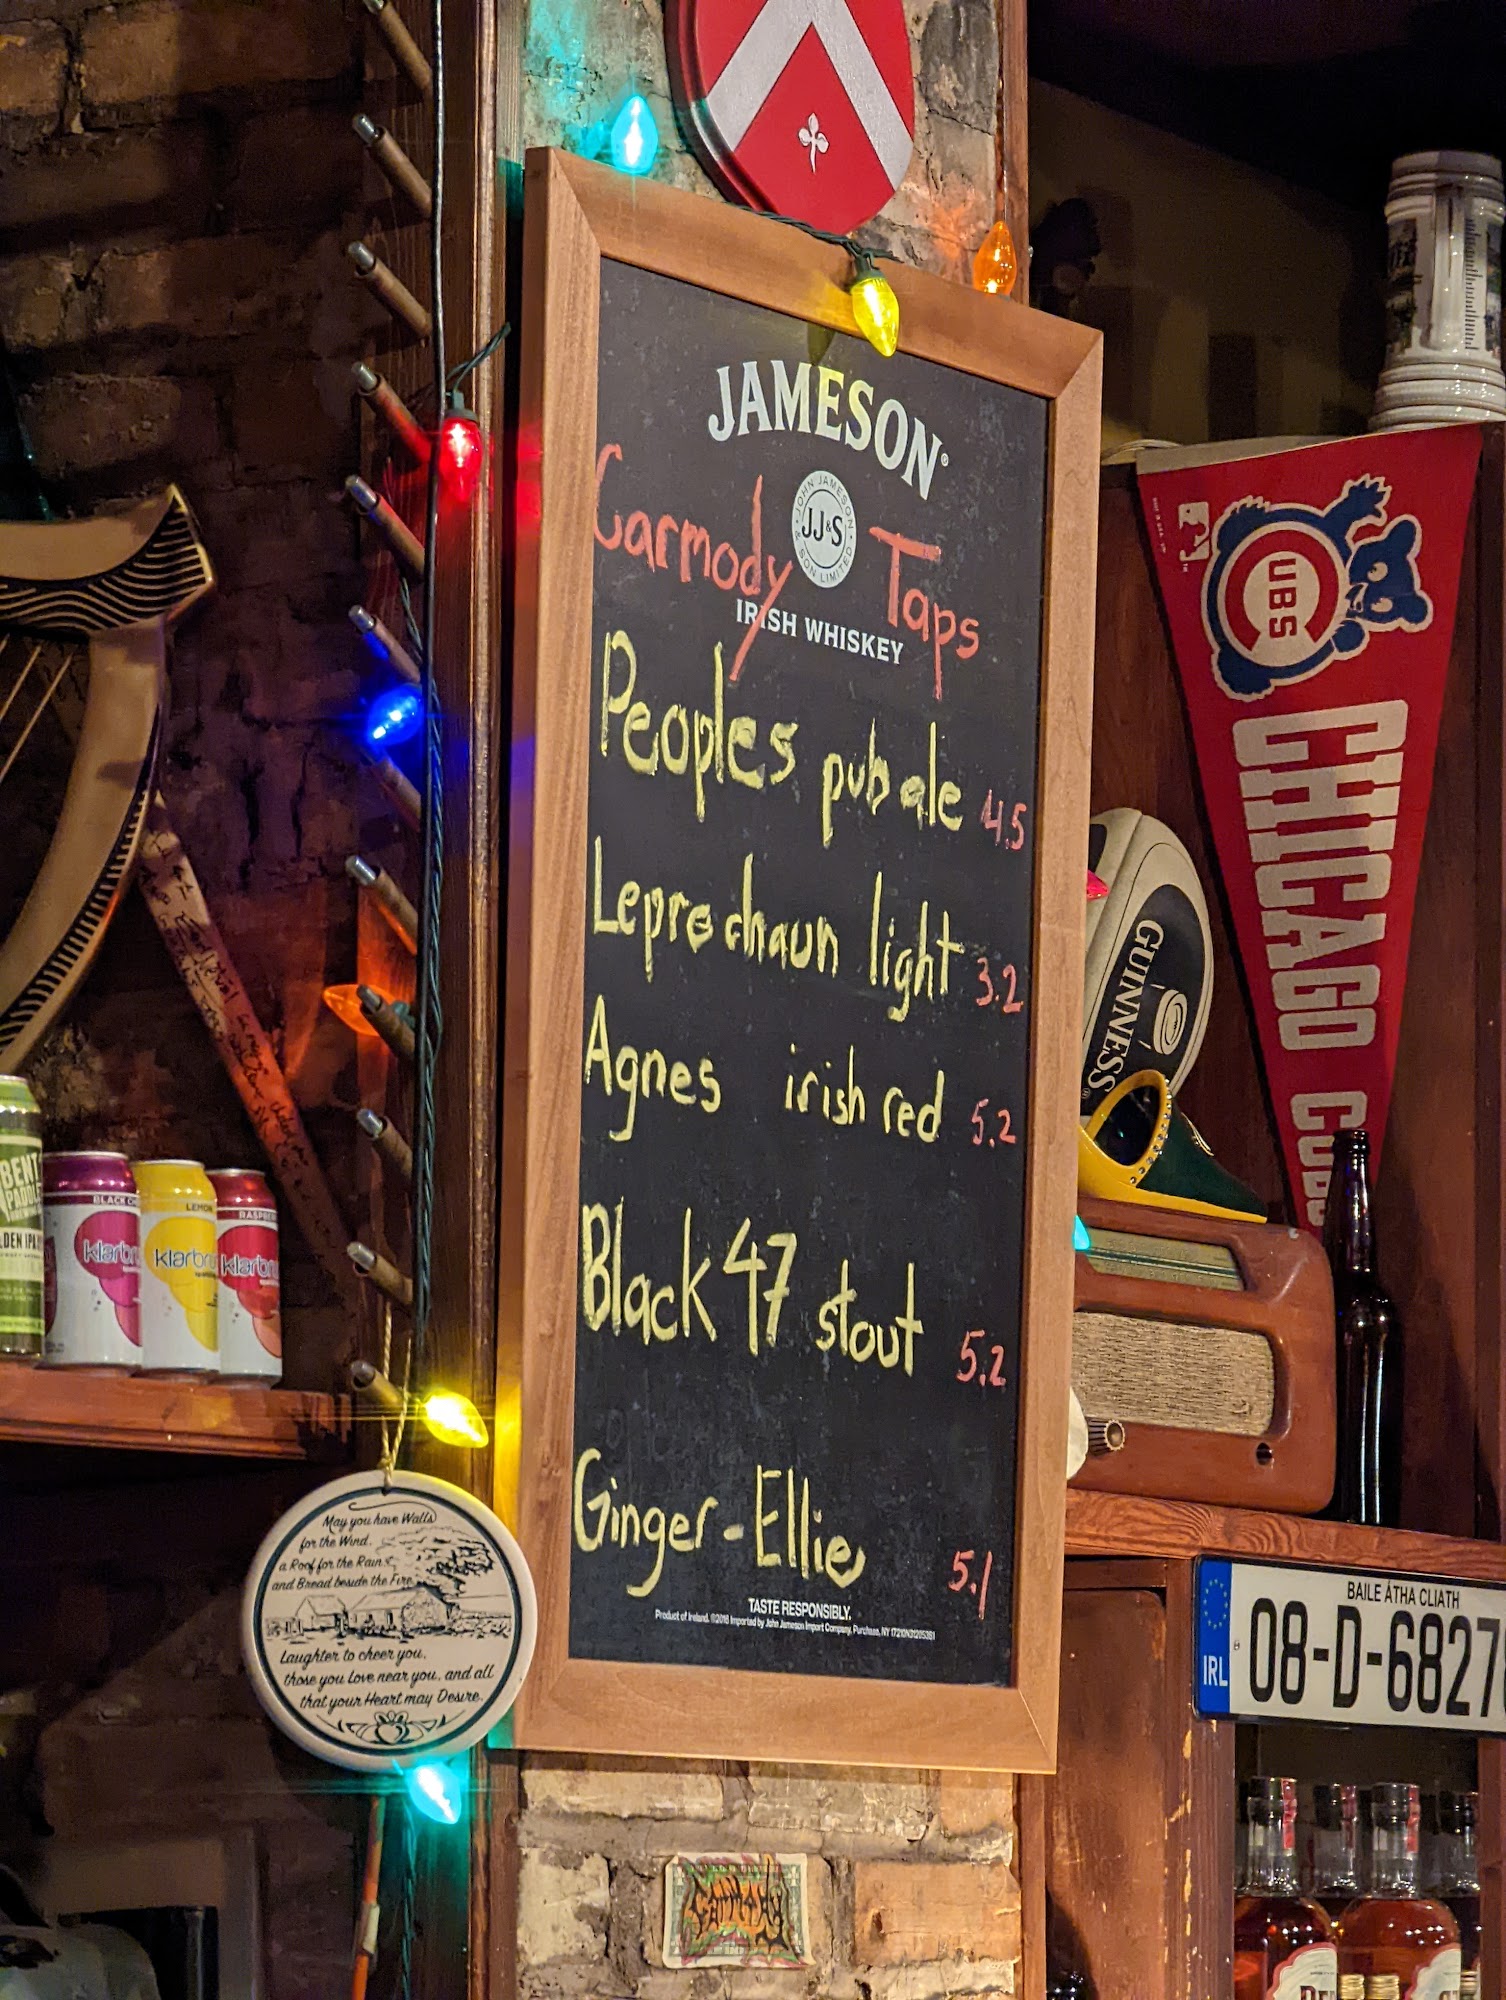 JAMESON®
JOHN JAMESON
JJ&S
& SON LIMITED
Carmody Taps
IRISH WHISKEY
Peoples pub ale 4.5
Leprechaun light 3.2
Agnes irish red 5.2
Black 47 stout 5.2
Ginger-Ellie 5.1
TASTE RESPONSIBLY.
Product of Ireland. ©2018 Imported by John Jameson Import Company, Purchase, NY
May you have Walls
for the Wind,
a Roof for the Rain,
and Bread beside the Fire
Laughter to cheer you,
those you Love near you, and all
that your Heart may Desire.
BENT
BLACK
klarbr
LEMON
klarbr
RASPBE
klarbr
CUBS
CHICAGO CUBS
GUINNESS
BAILE ÁTHA CLIATH
IRL
08-D-6827
CARMODY